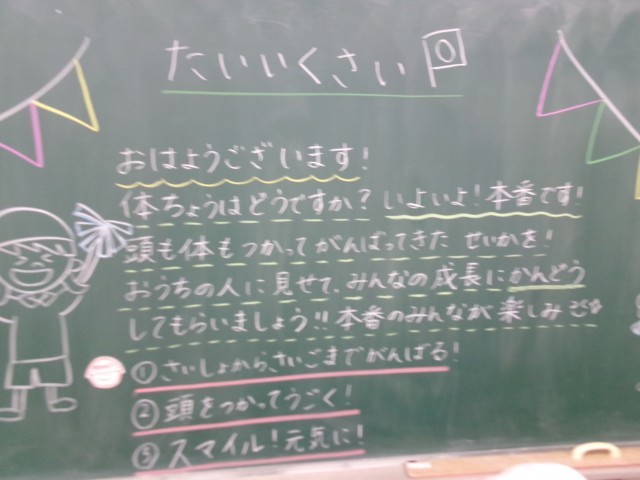 たいいくさい
おはようございます!
体ちょうはどうですか? いよいよ!本番です!
頭も体もつかってがんばってきたせいかを!
おうちの人に見せて、みんなの成長にかんどう
してもらいましょう!!本番のみんなが楽しみ
①さいしょからさいごまでがんばる!
②頭をつかってうごく!
③スマイル!元気に!